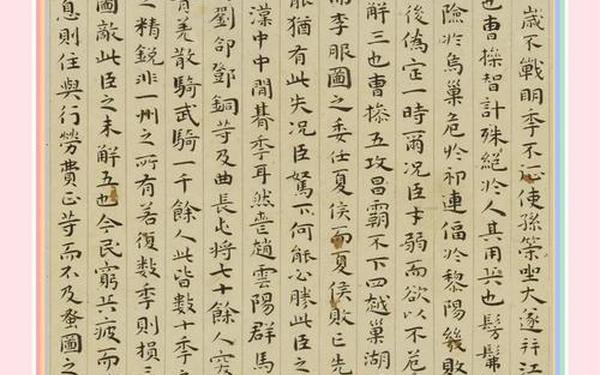 歲不戰明季不征使孫策坐大遂并江
也曹操智計殊絕於人其用兵也髣髴
險於烏巢危於祁連偪於黎陽幾敗
後偽定一時爾況臣才弱而欲以不危
解三也曹操五攻昌霸不下四越巢湖
而李服圖之委任夏侯而夏侯敗亡先
能猶有此失況臣駑下何能必勝此臣之
漢中中間朞季耳然喪趙雲陽群馬
劉郃鄧銅等及曲長屯將七十餘人突
青羌散騎武騎一千餘人此皆數十季之
之精銳非一州之所有若復數季則損三
圖敵此臣之未解五也今民窮兵疲而
息則住與行勞費正等而不及蚤圖之